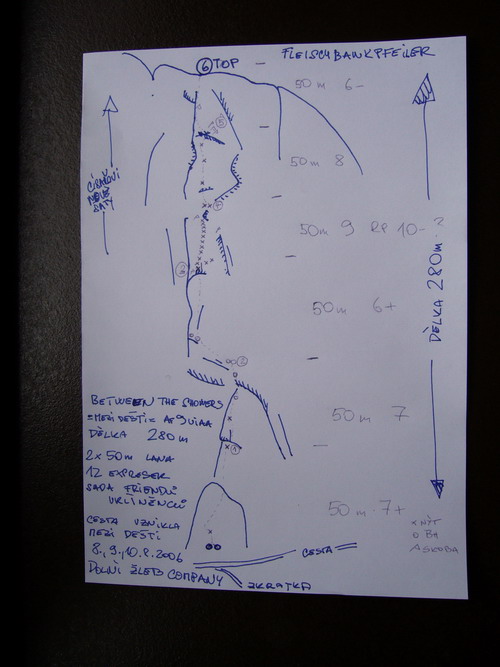 FLEISCHBANKPFEILER
⑥ TOP
50 m 6-
50 m 8
50 m 9 RP 10-?
50 m 6+
50 m 7
50 m 7+
DÉLKA 280m
NOVÉ
ŠATY
⑤
③
②
①
BETWEEN THE SHOWERS
=MEZI DEŠTI=
DÉLKA 280m
2x 50m LANA
12 EXPRESEK
SADA FRIENDŮ
VKLÍNĚNCŮ
CESTA VZNIKLA
MEZI DEŠTI
8., 9., 10. 8. 2006
DOLNÍ ŽLEB COMPANY
CESTA
ZKRATKA
X NÝT
O BH
A SKOBA